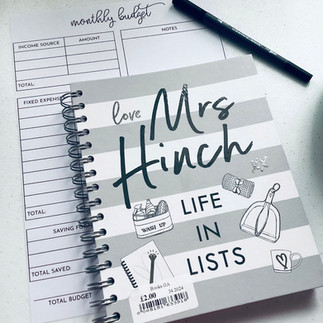 monthly budget
INCOME SOURCE
AMOUNT
NOTES
TOTAL:
FIXED EXPENS
TOTAL:
SAVING FO
TOTAL SAVED:
TOTAL BUDGET
love
Mrs
Hinch
LIFE
IN
LISTS
WASH UP
£2.00